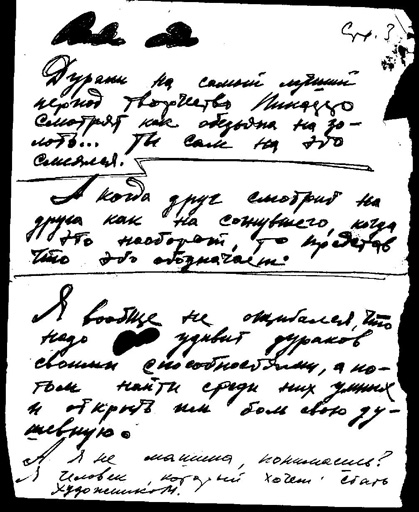 Стр. 3
Дураки на самый лучший
период творчества Пикассо
смотрят как обезьяна на зо-
лото... Ты сам на это
смеялся.
А когда друг смотрит на
друга как на сонувшего, когда
это наоборот, то представь
что это обозначает.
Я вообще не ошибался, что
надо удивит дураков
своими способностями, а по-
том найти среди них умных
и открыть им боль свою ду-
шевную.
А я не машина, понимаешь?
Я человек, который хочет стать
художником.